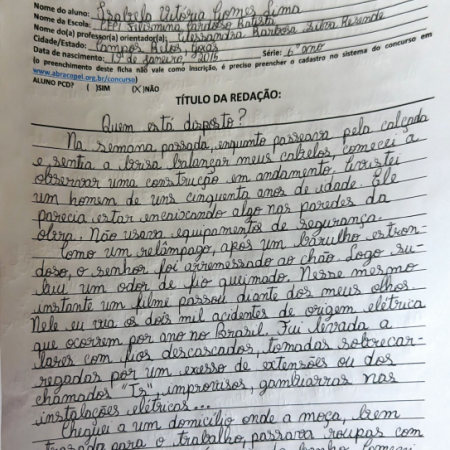 Nome do aluno: Isabela Vitória Gomes Lima
Nome da Escola: Filismina Cardoso Batista
Nome do(a) professor(a) orientador(a): Alessandra Barbosa Silva Resende
Cidade/Estado: Campos Belos, Goiás
Data de nascimento: 19 de Janeiro, 2015 Série: 6° ano
(o preenchimento deste ficha não vale como inscrição, é preciso preencher o cadastro no sistema do concurso em
www.abracopel.org.br/concurso)
ALUNO PCD? ( )SIM (X)NÃO
TÍTULO DA REDAÇÃO:
Quem está disposto?
Na semana passada, enquanto passeava pela calçada
e sentia a brisa balançar meus cabelos, comecei a
observar uma construção em andamento. Avistei
um homem de uns cinquenta anos de idade. Ele
parecia estar encaixando algo nas paredes da
obra. Não usava equipamentos de segurança.
Como um relâmpago, após um barulho estron-
doso, o senhor foi arremessado ao chão. Logo su-
biu um odor de fio queimado. Nesse mesmo
instante um filme passou diante dos meus olhos.
Nele eu via os dois mil acidentes de origem elétrica
que ocorrem por ano no Brasil. Fui levada a
lares com fios descascados, tomadas sobrecar-
regadas por um exesso de extensões ou dos
chamados "Ts", improvisos, gambiarras nas
instalações elétricas...
Cheguei a um domicílio onde a moça, bem
para o trabalho, passava roupas com